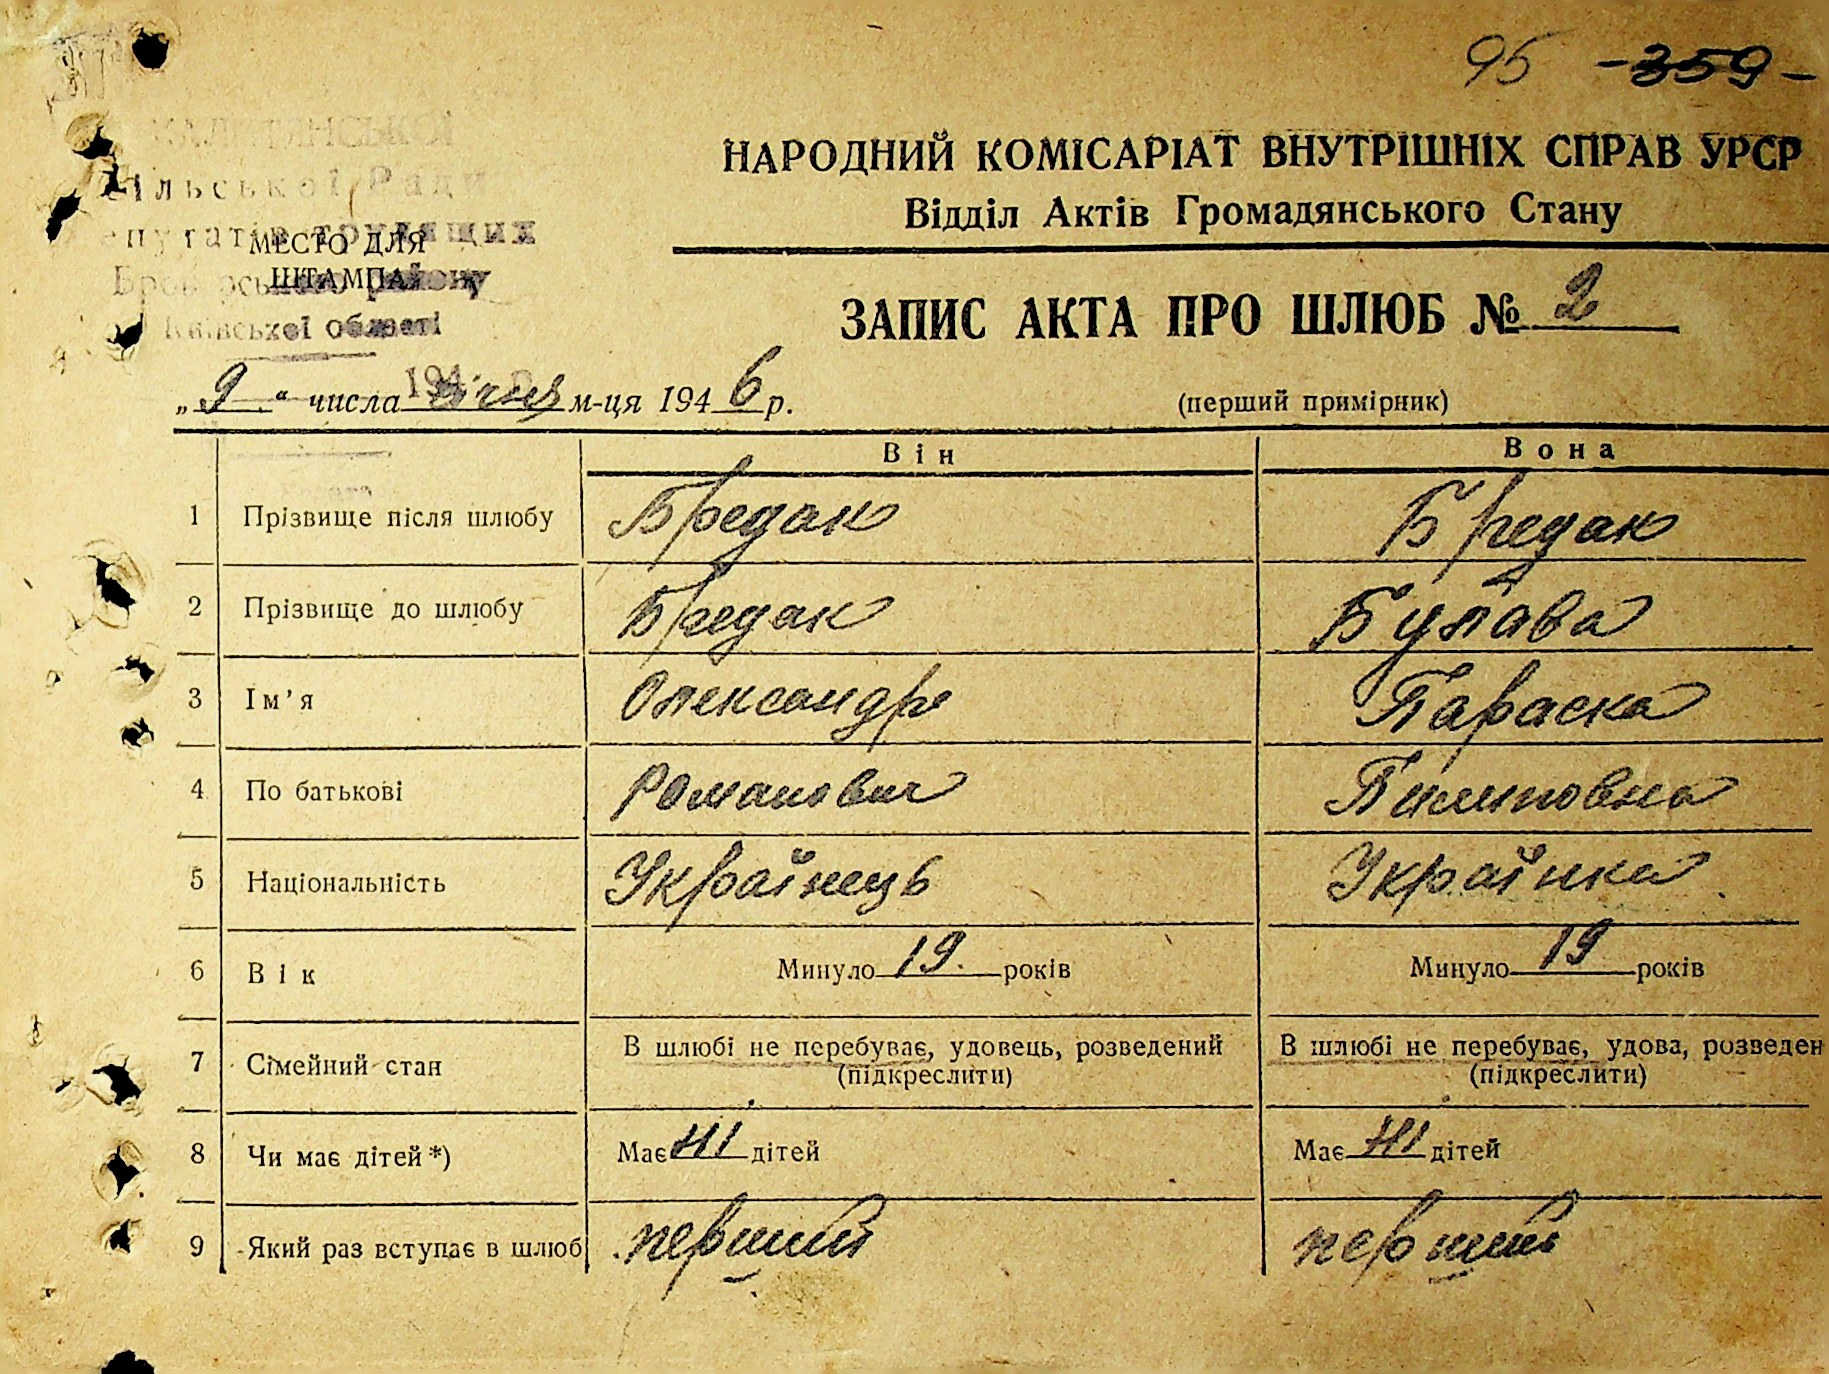 95 -359-
НАРОДНИЙ КОМІСАРІАТ ВНУТРІШНІХ СПРАВ УРСР
Відділ Актів Громадянського Стану
Сільської Ради
депутатів трудящих
МЕСТО ДЛЯ
ШТАМПА
Броварського району
Київської області
ЗАПИС АКТА ПРО ШЛЮБ № 2
„9“ числа січня м-ця 1946 р.
(перший примірник)
Він Вона
1 Прізвище після шлюбу Бредак Бредак
2 Прізвище до шлюбу Бредак Булава
3 Ім'я Олександр Параска
4 По батькові Романович Пилиповна
5 Національність Українець Українка
6 Вік Минуло 19 років Минуло 19 років
7 Сімейний стан В шлюбі не перебуває, удовець, розведений В шлюбі не перебуває, удова, розведен
(підкреслити) (підкреслити)
8 Чи має дітей*) Має ні дітей Має ні дітей
9 Який раз вступає в шлюб перший перший